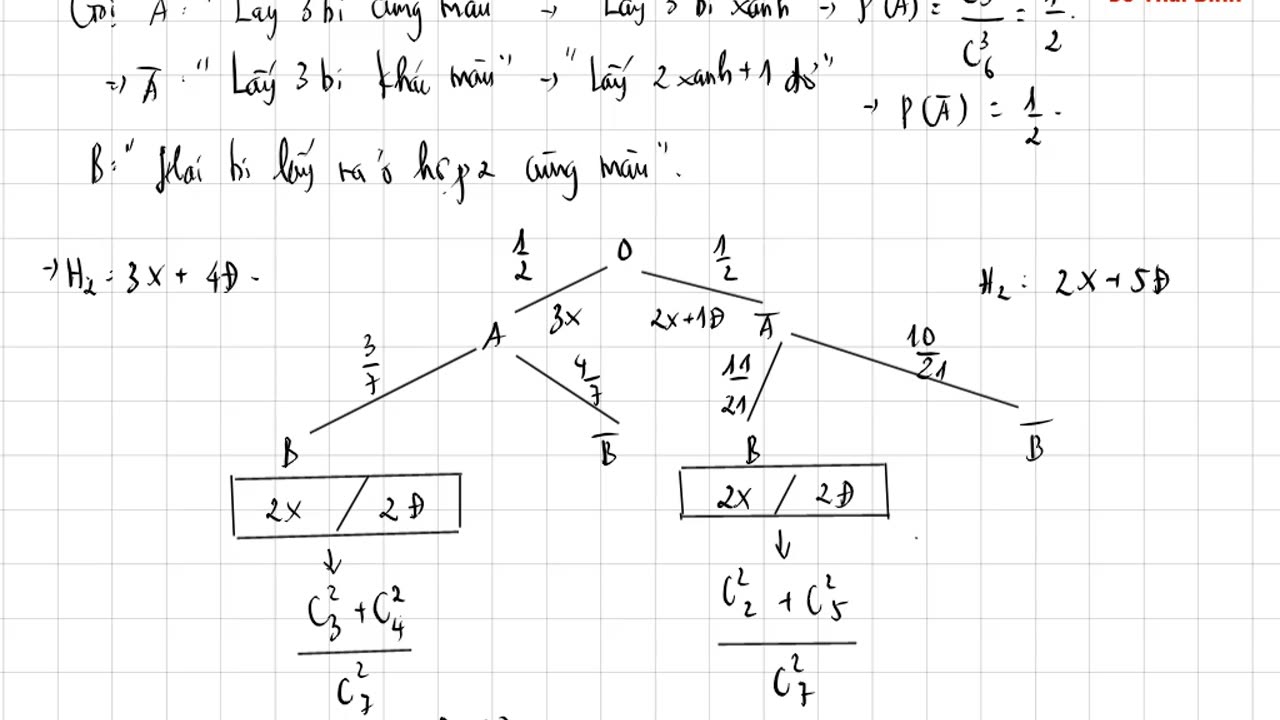 Gọi A: " Lấy 3 bi cùng màu → Lấy 3 bi xanh → P(A) = C₅³/C₆³ = 1/2.
=> A̅: " Lấy 3 bi khác màu" → "Lấy 2 xanh + 1 đỏ"
→ P(A̅) = 1/2.
B: " Hai bi lấy ra ở hộp 2 cùng màu".
1/2 O 1/2
→ H₂ = 3X + 4Đ. H₂: 2X + 5Đ
A 3X 2X+1Đ A̅
3/7 4/7 11/21 10/21
B B̅ B B̅
2X / 2Đ 2X / 2Đ
↓ ↓
(C₃² + C₄²)/C₇² (C₂² + C₅²)/C₇²